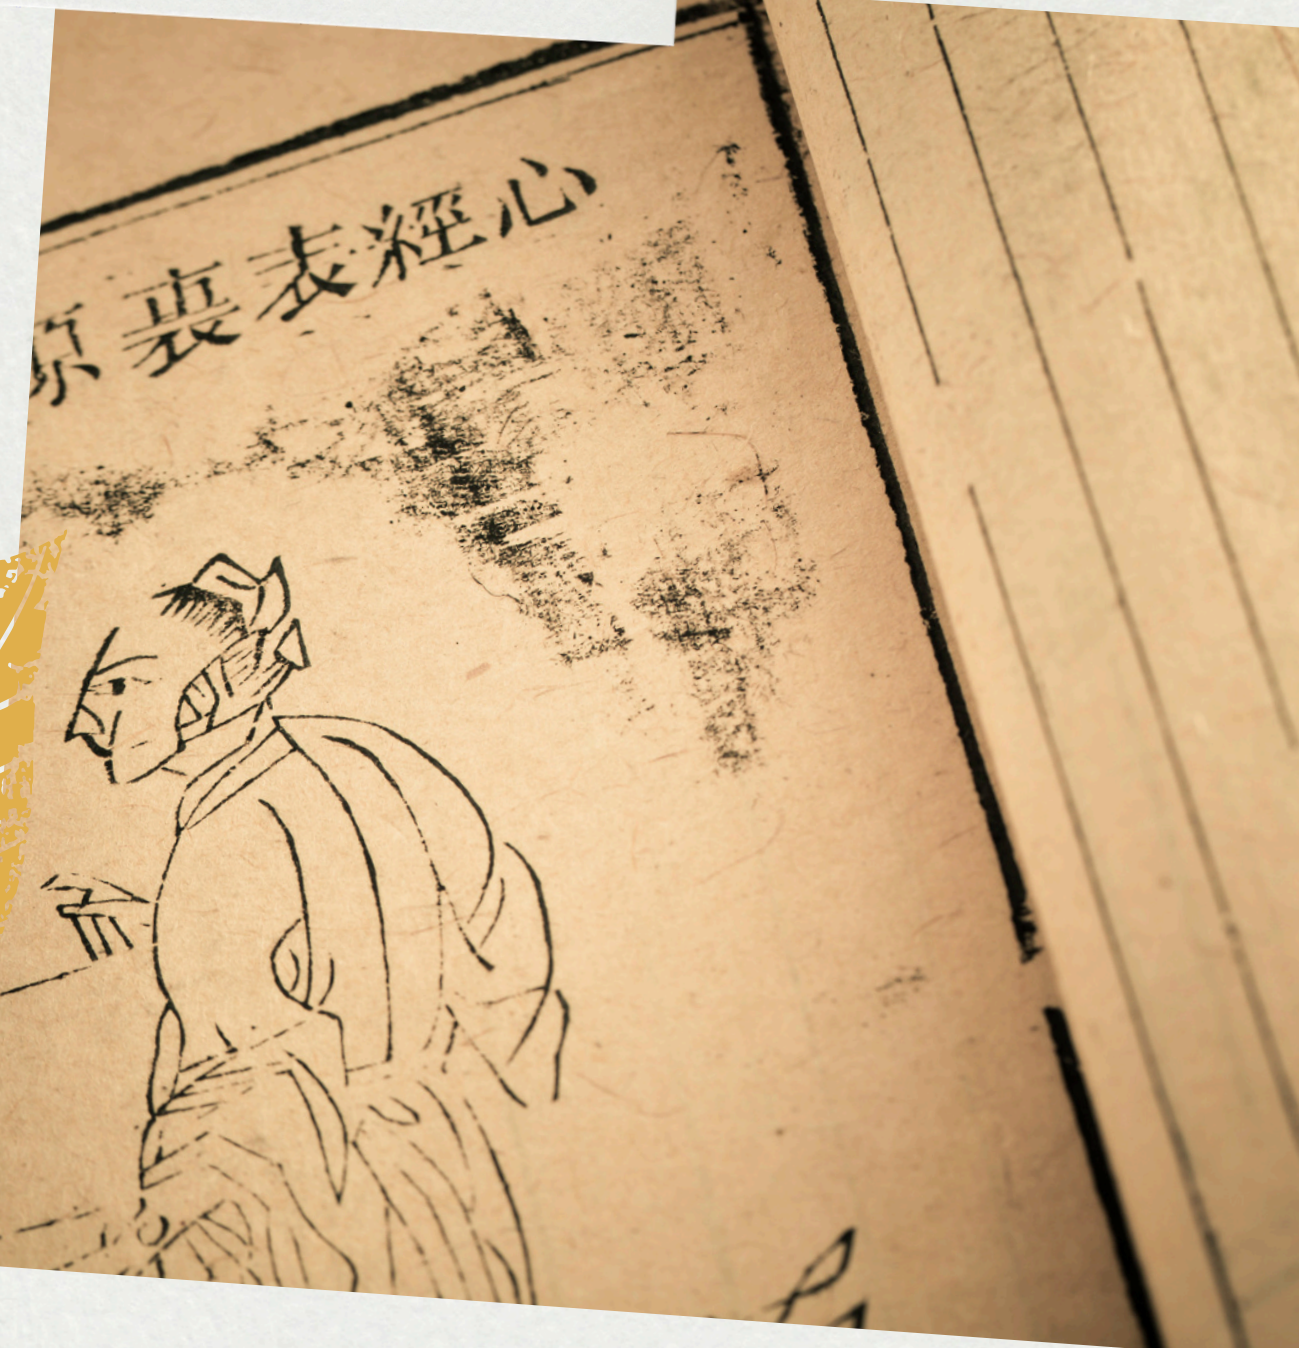 心經表裏